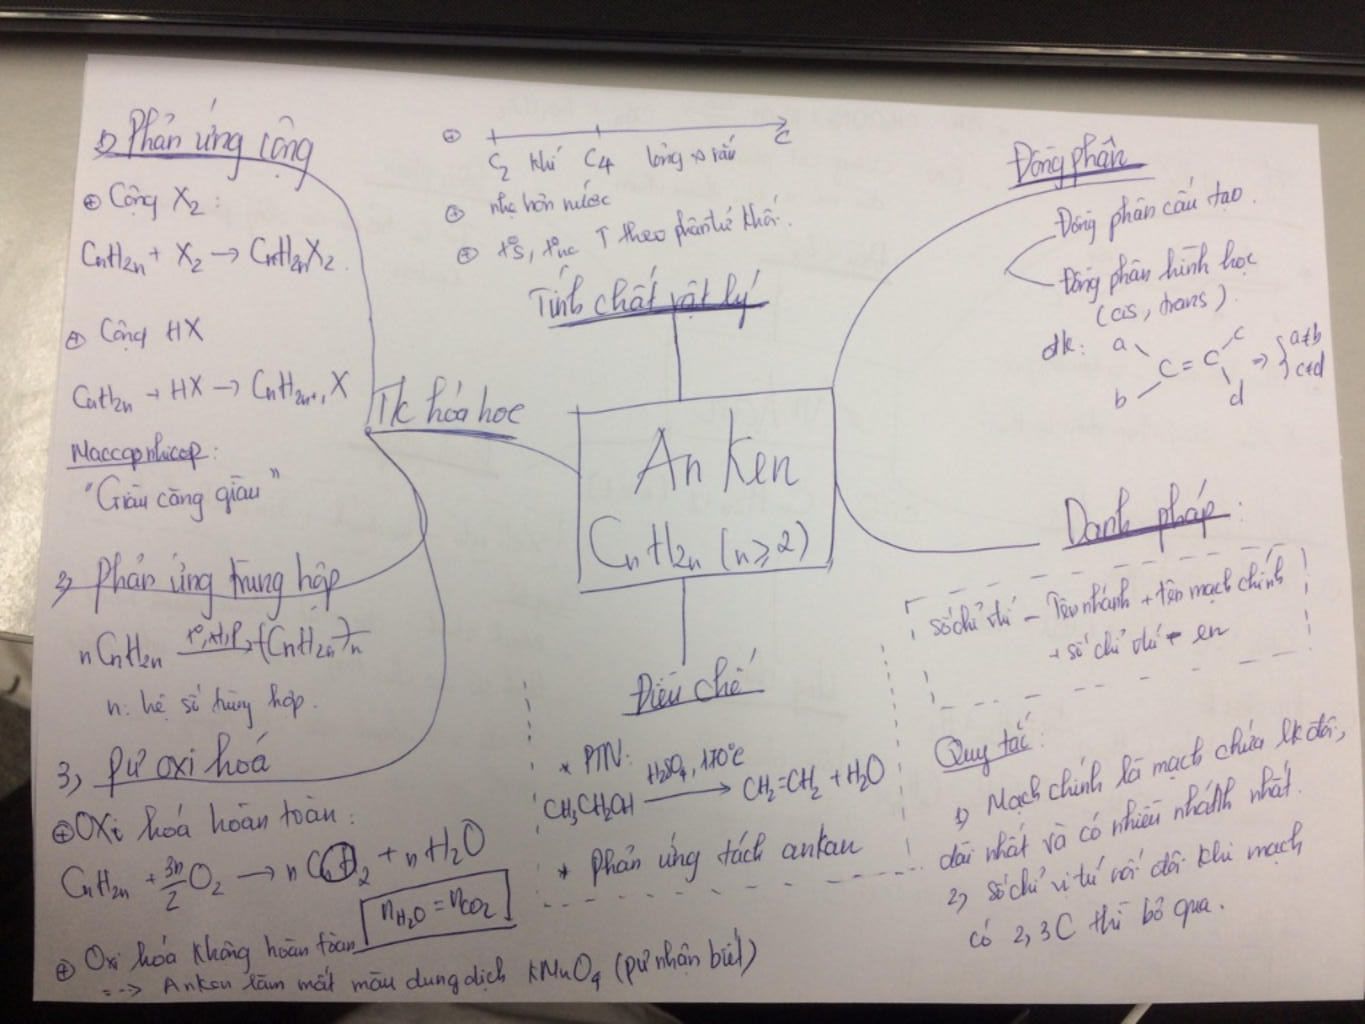 1) Phản ứng cộng
⊕ Cộng X₂:
CnH2n + X₂ → CnH2nX₂
⊕ Cộng HX
CnH2n + HX → CnH2n+1X
Maccopnhicop:
"Giàu càng giàu"
2) Phản ứng trùng hợp
nCnH2n t°, xt, p → (CnH2n)n
n: hệ số trùng hợp.
3) Pư oxi hoá
⊕ Oxi hoá hoàn toàn:
CnH2n + 3n/2 O₂ → nCO₂ + nH₂O
nH₂O = nCO₂
⊕ Oxi hoá không hoàn toàn
--→ Anken làm mất màu dung dịch KMnO₄ (pư nhận biết)
Tc hóa học
⊕ C₂ khí C₄ lỏng → rắn C
⊕ nhẹ hơn nước
⊕ t°s, t°nc ↑ theo phân tử khối.
Tính chất vật lý
An Ken
CnH2n (n ≥ 2)
Điều chế
* PTN:
CH₃CH₂OH H₂SO₄, 170°C → CH₂=CH₂ + H₂O
* Phản ứng tách ankan
Đồng phân
Đồng phân cấu tạo.
Đồng phân hình học
(cis, trans).
đk: a b C = C c d ⇒ { a≠b
c≠d
Danh pháp:
số chỉ vị trí - Tên nhánh + tên mạch chính
+ số chỉ vị trí - en
Quy tắc:
1) Mạch chính là mạch chứa lk đôi,
dài nhất và có nhiều nhánh nhất.
2) Số chỉ vị trí nối đôi khi mạch
có 2, 3C thì bỏ qua.